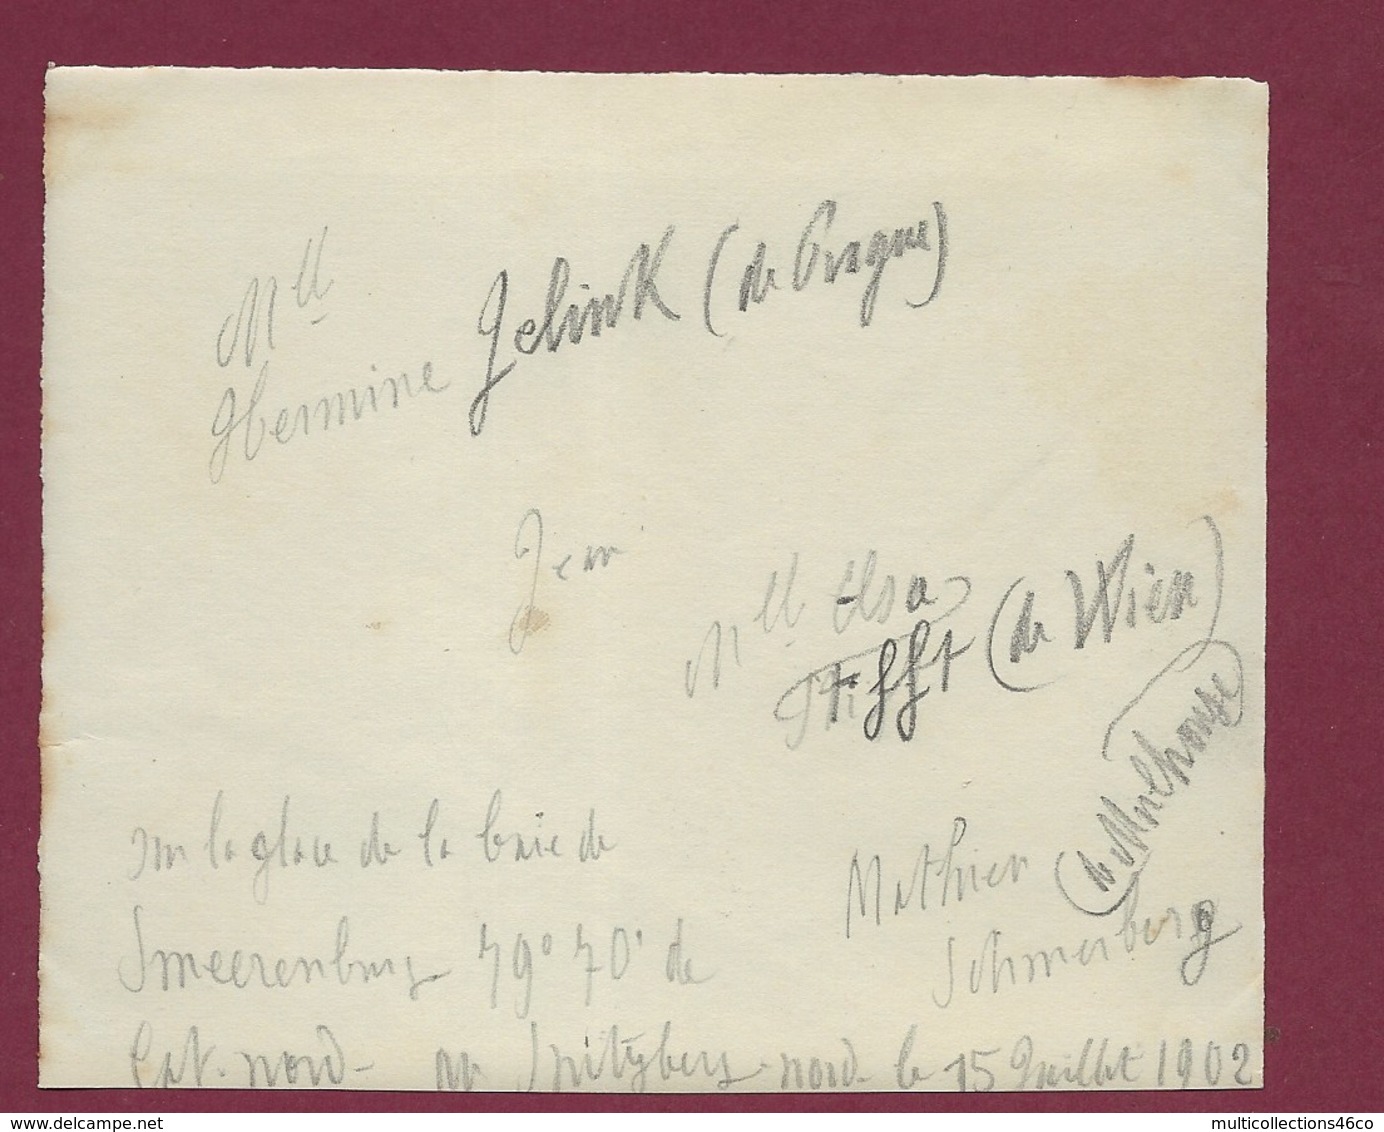 Mlle
Hermine Jelink (de Prague)
Jean
Mlle Elsa
Tifft (de Wien)
(de Mulhouse)
Mathieu
Schmerberg
sur la glace de la baie de
Smeerenburg 79° 70' de
Lat. nord - au Spitzberg-nord le 15 Juillet 1902
multicollections46co
www.delcampe.net